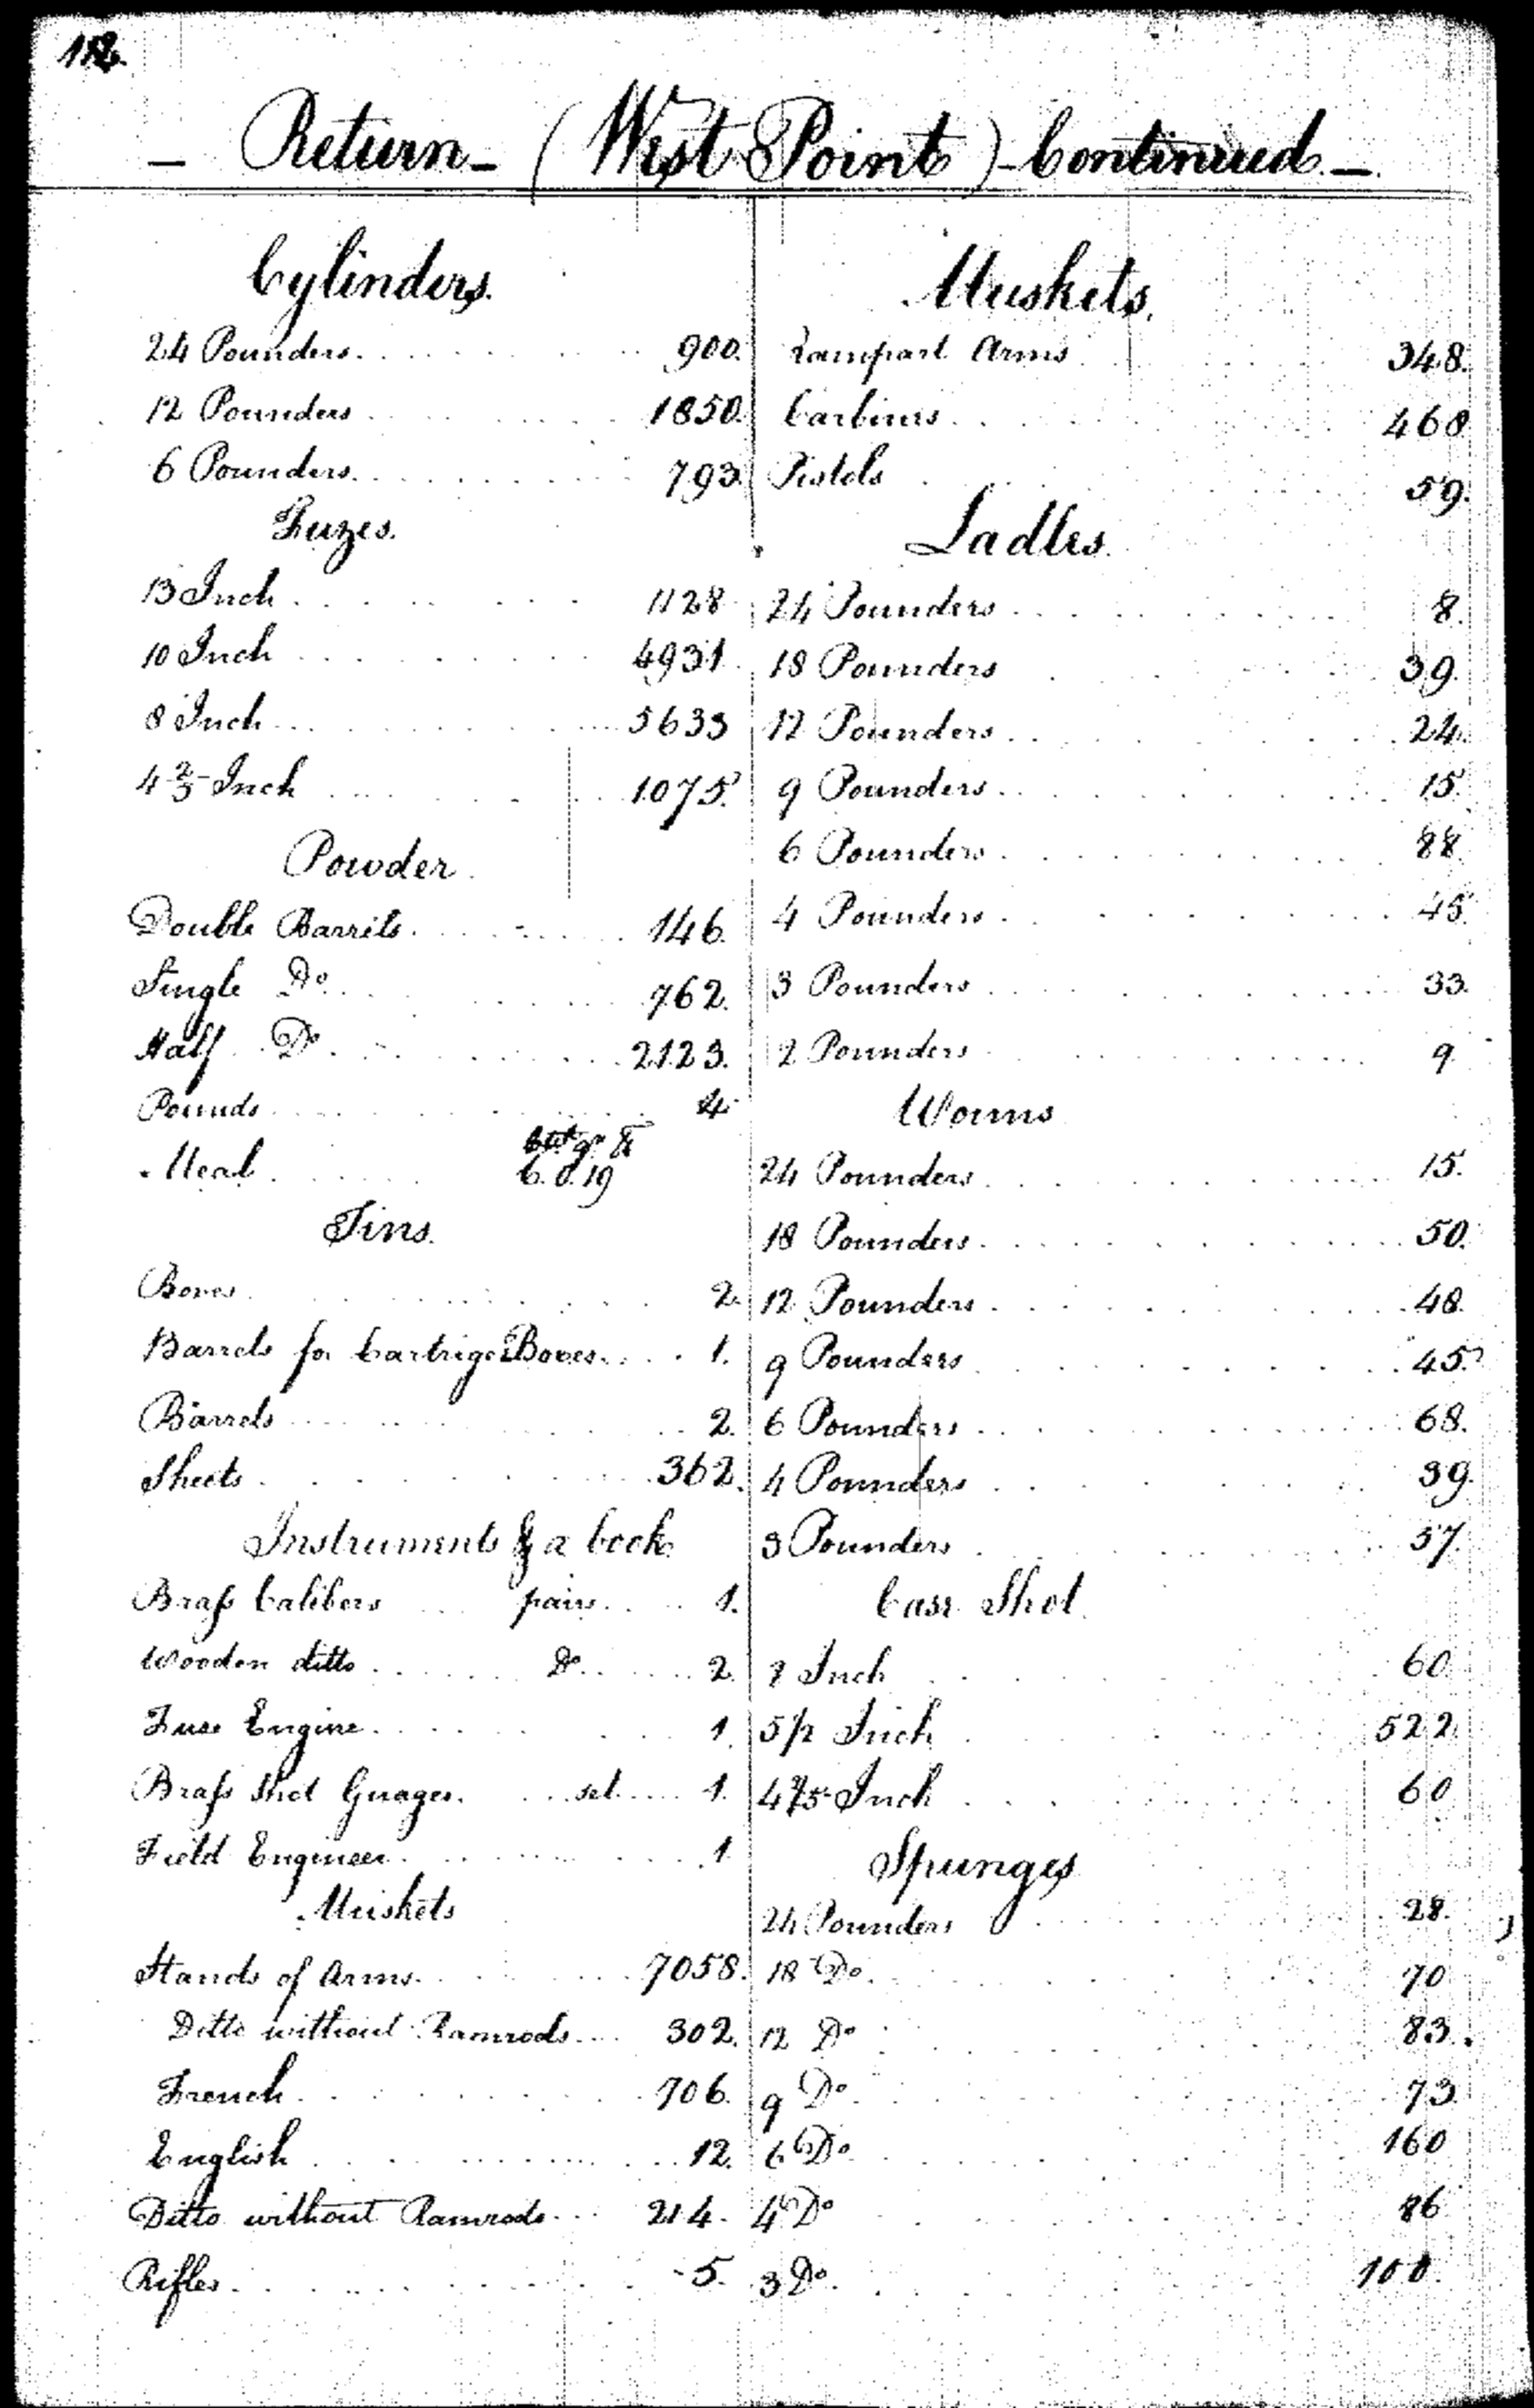 112.
- Return - (West Point) - Continued. -
Cylinders.
24 Pounders. 900.
12 Pounders 1850.
6 Pounders. 793.
Fuzes.
13 Inch 1128
10 Inch 4931
8 Inch 5633
4 2/5 Inch 1075.
Powder.
Double Barrils. 146.
Single Do. 762.
Half Do. 2123.
Pounds 4
Meal 6.0.19
Tins.
Boxes. 2.
Barrels for Cartriges Boxes. 1.
Barrels 2.
Sheets. 362.
Instruments & a book.
Brass Calibers pairs. 1.
Wooden ditto Do. 2
Fuse Engine. 1.
Brass Shot Guages. set. 1.
Field Engineer. 1
Muskets
Stands of Arms. 7058.
Ditto without Ramrods. 302.
French. 706.
English 12.
Ditto without Ramrods. 214.
Rifles. 5.
Muskets.
Rampart Arms 348.
Carbines. 468
Pistols 59.
Ladles.
24 Pounders 8.
18 Pounders 39.
12 Pounders 24.
9 Pounders 15.
6 Pounders 88.
4 Pounders 45.
3 Pounders 33.
2 Pounders 9
Worms
24 Pounders 15.
18 Pounders. 50.
12 Pounders 48.
9 Pounders 45.
6 Pounders 68.
4 Pounders 39.
3 Pounders 57.
Case Shot
8 Inch 60
5 1/2 Inch 522
4 2/5 Inch 60
Spunges
24 Pounders 28.
18 Do. 70
12 Do 83.
9 Do 73
6 Do 160
4 Do 86
3 Do. 100.